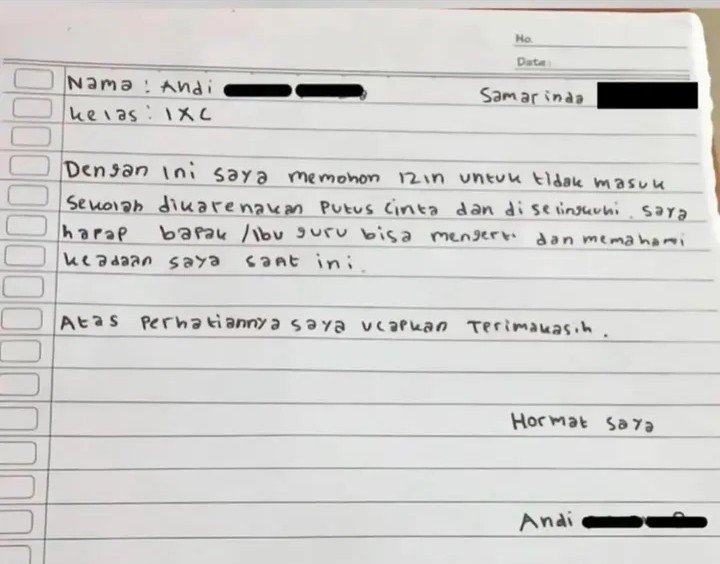 No.
Date:
Nama : Andi
Samarinda
Kelas : IXC
Dengan ini saya memohon izin untuk tidak masuk
sekolah dikarenakan Putus cinta dan diselingkuhi. saya
harap bapak /ibu guru bisa mengerti dan memahami
keadaan saya saat ini.
Atas perhatiannya saya ucapkan Terimakasih.
Hormat saya
Andi